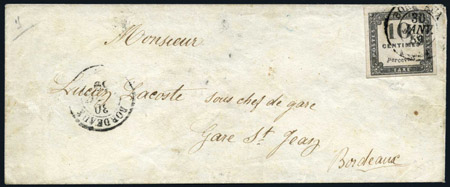 BORDEAUX
30
JANV.
59
10
CENTIMES
POSTES
à percevoir
TAXE
Monsieur
Lucien Lacoste sous chef de gare
Gare St Jean
Bordeaux
30
BORDEAUX